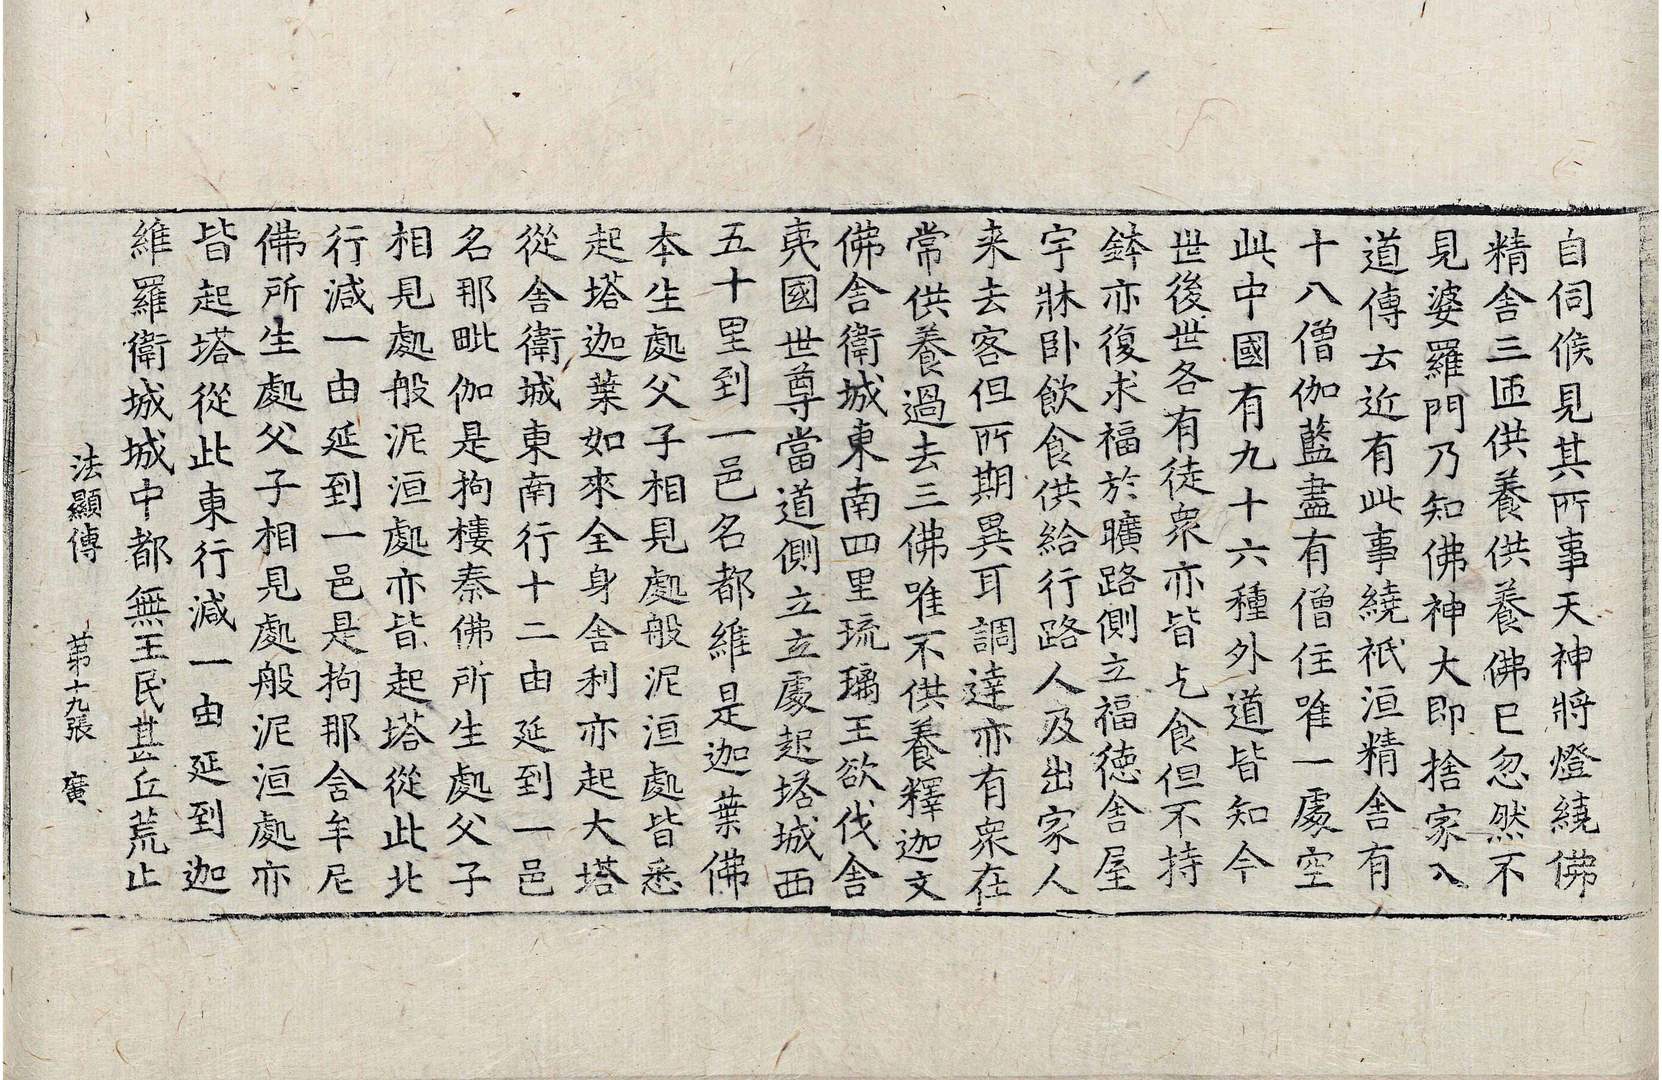 自伺候見其所事天神將燈繞佛
精舎三匝供養供養佛已忽然不
見婆羅門乃知佛神大即捨家入
道傳云近有此事繞祇洹精舎有
十八僧伽藍盡有僧住唯一處空
此中國有九十六種外道皆知今
世後世各有徒衆亦皆乞食但不持
鉢亦復求福於曠路側立福徳舎屋
宇牀卧飲食供給行路人及出家人
来去客但所期異耳調達亦有衆在
常供養過去三佛唯不供養釋迦文
佛舎衛城東南四里琉璃王欲伐舎
夷國世尊當道側立立處起塔城西
五十里到一邑名都維是迦葉佛
本生處父子相見處般泥洹處皆悉
起塔迦葉如來全身舎利亦起大塔
從舎衛城東南行十二由延到一邑
名那毗伽是拘樓秦佛所生處父子
相見處般泥洹處亦皆起塔從此北
行減一由延到一邑是拘那舎牟尼
佛所生處父子相見處般泥洹處亦
皆起塔從此東行減一由延到迦
維羅衛城城中都無王民甚丘荒止
法顯傳 第十九張 廣